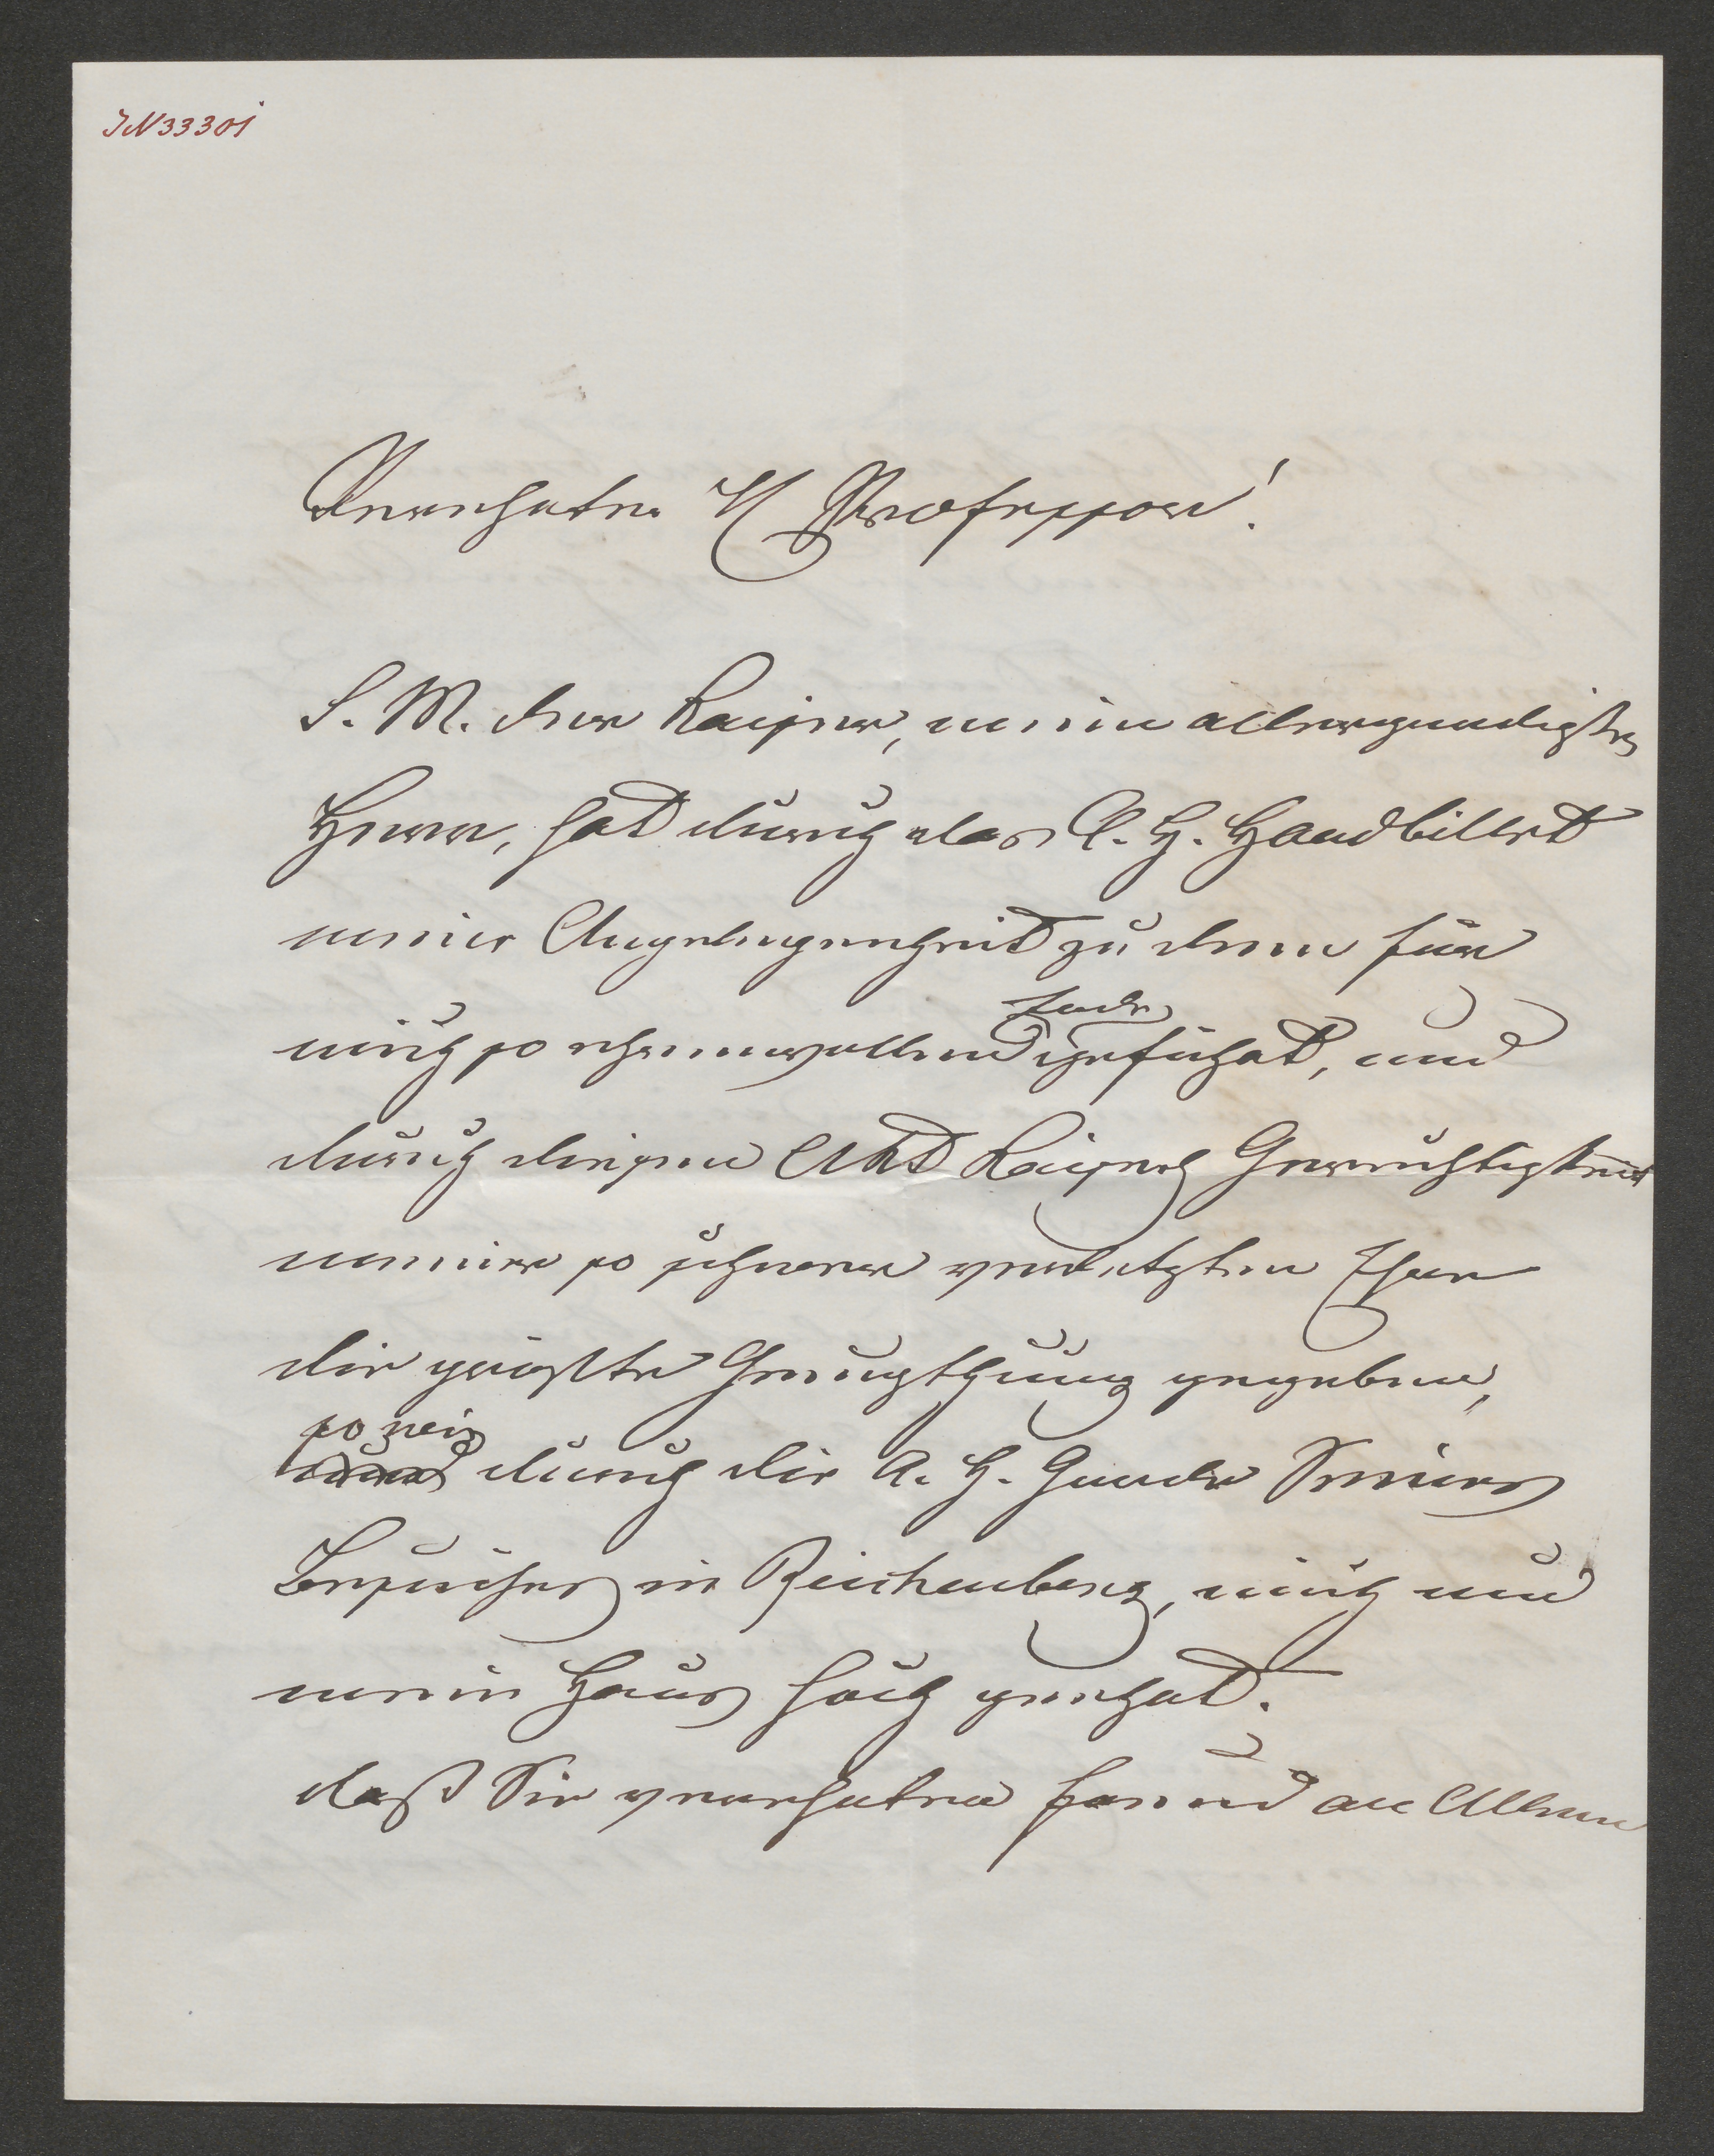 IN 33301
Verehrter H Professor!
S. M. der Kaiser, mein allergnädigster
Herr, hat durch das A. H. Handbillet
meine Angelegenheit zu dem für
mich so ehrenvollen Ende geführt, und
durch diesen Akt kaiserl Gerechtigkeit
meiner so schwer verletzten Ehre
die größte Genugthuung gegeben,
so wie durch die A. H. Gnade Seines
Besuches in Reichenberg, mich und
mein Haus hoch geehrt.
daß Sie verehrter Freund an Allem